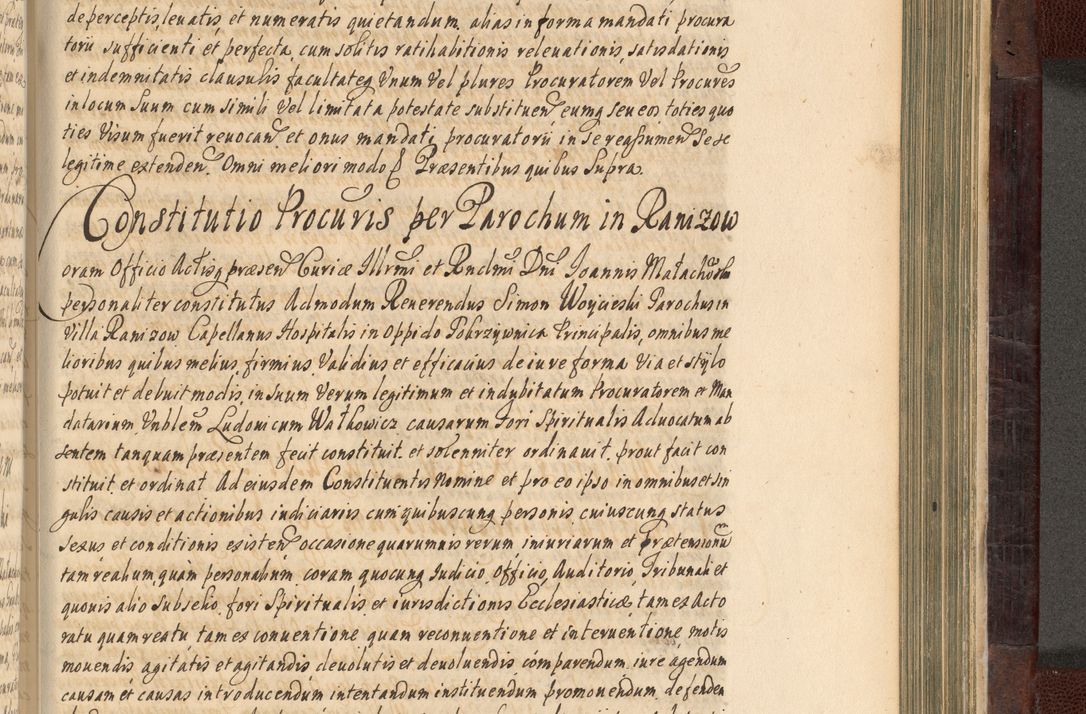 de perceptis, leuatis, et numeratis quietandum. alias in forma mandati procura
torii sufficienti et perfecta, cum solitis ratihabitionis releuationis, satisdationis
et indemnitatis clausulis facultateq Vnum Vel plures Procuratorem Vel Procures
in locum Suum cum simili Vel limitata potestate substituen, eumq seu eos toties quo
ties Visum fuerit reuocan et onus mandati, procuratorii in Se reassumen Sese
legitime extenden. Omni meliori modo Præsentibus quibus Supra.
Constitutio Procuris per Parochum in Ranizow
Coram Officio Actisq præsen Curiæ Illrmi et Rndmi Dni Joannis Małachowski
personaliter constitutus Admodum Reuerendus Simon Woycieski Parochus in
Villa Ranizow Capellanus Hospitalis in Oppido Pokrzywnica Principalis, omnibus me
lioribus quibus melius, firmius, Validius et efficacius de iure forma Via et stylo
potuit et debuit modis, in suum Verum legitimum et indubitatum Procuratorem et Man
datarium Vnblem Ludouicum Wałkowicz causarum Fori Spiritualis Aduocatum ab
sentem tanquam præsentem fecit constituit, et solenniter ordinauit, prout facit con
stituit, et ordinat Ad eiusdem Constituentis Nomine et pro eo ipso in omnibus et sin
gulis causis et actionibus iudiciariis cum quibuscunq personis cuiuscunq status
sexus et conditionis existen occasione quarumuis rerum iniuriarum et prætensionu
tam realium quàm personalium coram quocunq Iudicio, Officio, Auditorio, Tribunali et
quouis alio Subselio, fori Spiritualis et iurisdictionis Ecclesiasticæ tam ex Acto
ratu quam reatu, tam ex conuentione quam reconuentione et interuentione, motis
mouendis agitatis et agitandis deuolutis et deuoluendis comparendum, iure agendum
causam et causas introducendum intentandum instituendum promouendum defenden